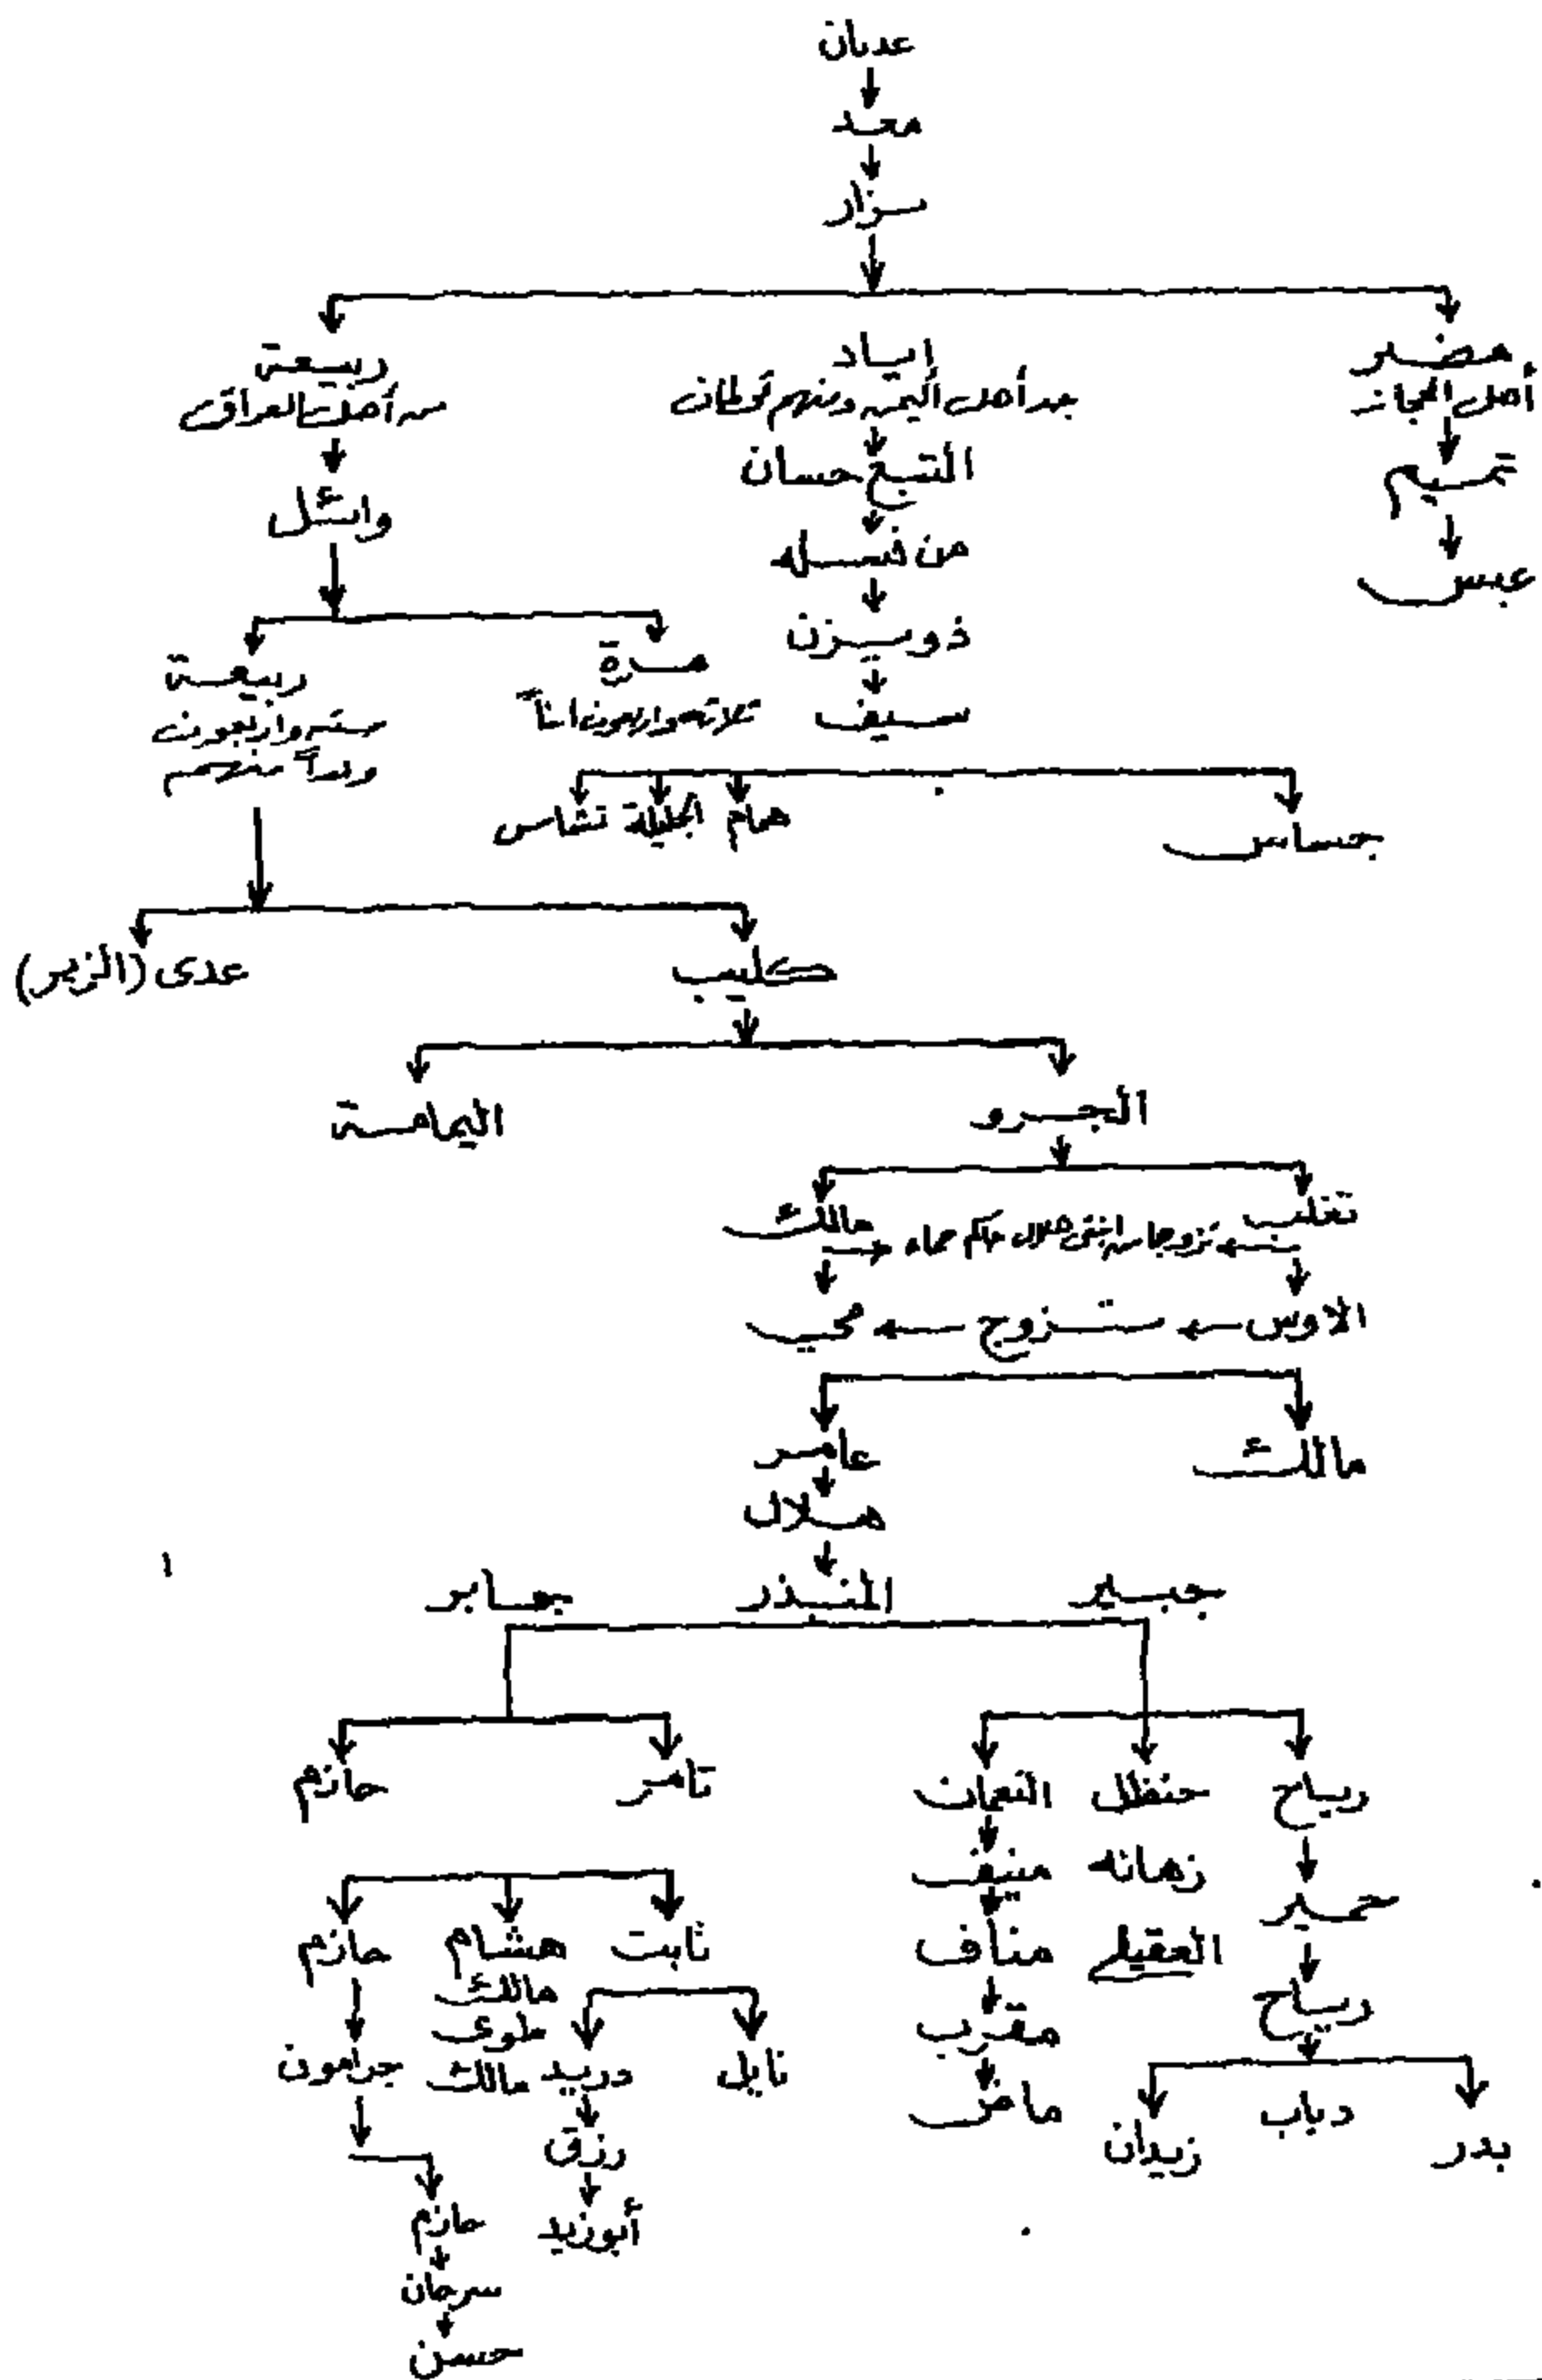 عدنان
معد
نزار
مضر
أهل الحجاز
تميم
عبس
اياد
جد أهل اليمن ومنهم قوطان
التبع حسان
من نسله
ذو يزن
سيف
ربيعة
من أهل العراق
وائل
مرة
ثلاثه واربعون ابناً
ربيعة
سته واربعون
ولداً منهم
جساس
همام
الجليلة
شاس
كليب
عدى (الزير)
الجرو
اليمامة
تغلب
تزوجا من ابنتى هلال حاكم حماه
مالك
الاوس
تزوج
محيب
مالك
عامر
هلال
جبير
المنذر
جابر
رياح
حنظل
النعمان
تامر
حازم
زهانه
العقيلى
منيف
مناف
مقرب
ماضى
رياح
بدر
دياب
زيدان
ثابت
هشام
مالك
علوى
مالك
حازم
نايل
دريد
رزق
أبوزيد
جرامون
حازم
سرحان
حسن